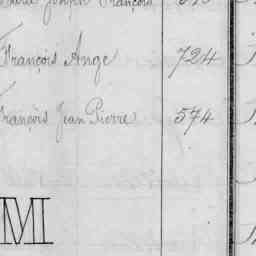 Joseph François
François Ange 724
François Jean Pierre 574
M